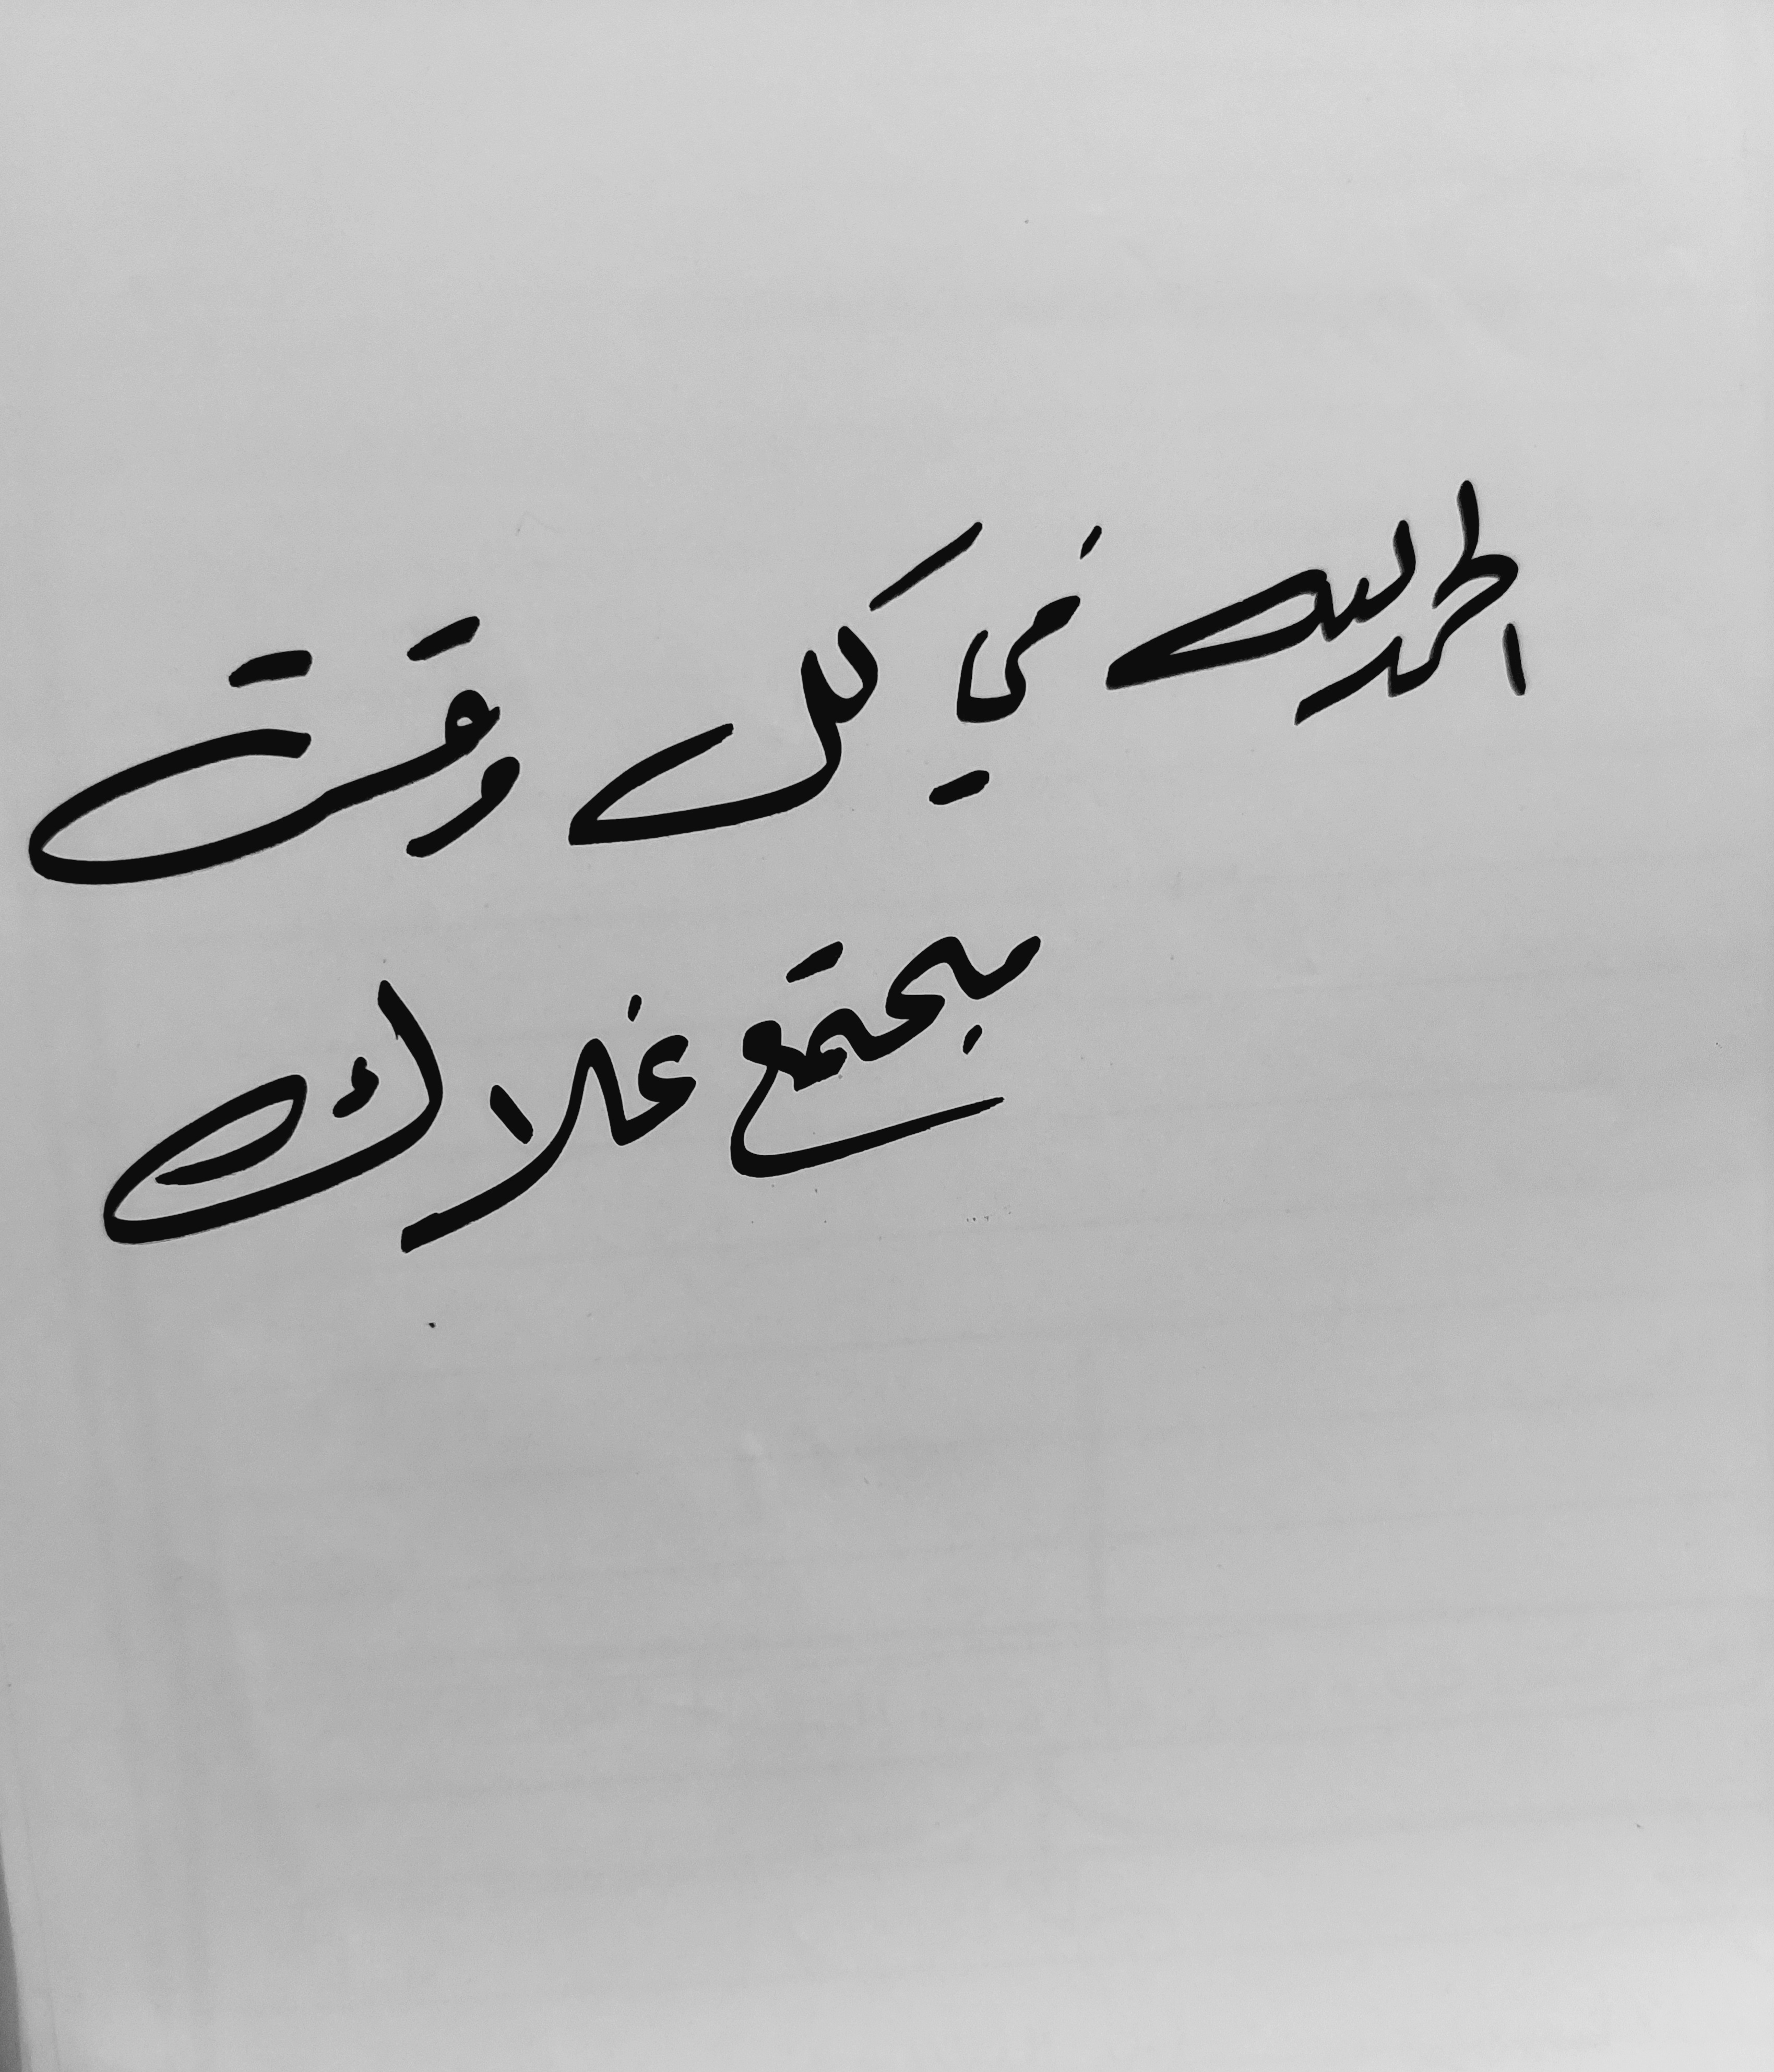 الحمد لله في كل وقت
يجتمع غلاك